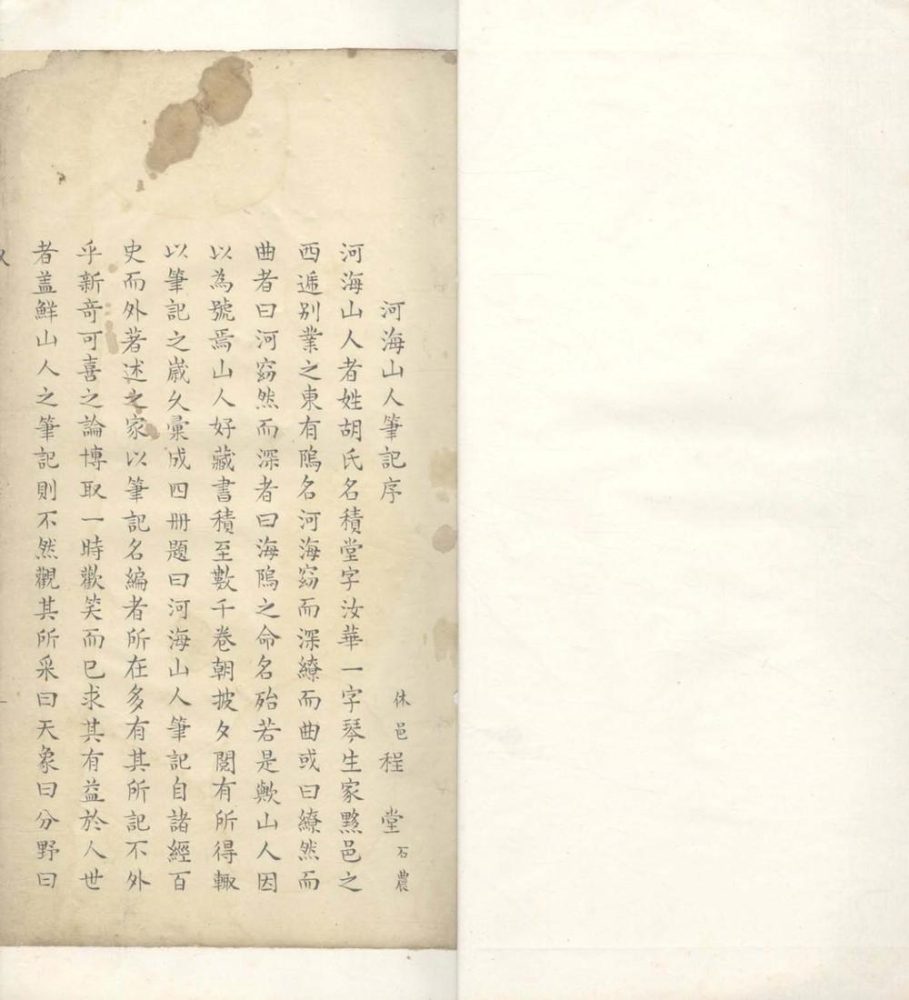 河海山人筆記序
休邑程 堂石農
河海山人者姓胡氏名積堂字汝華一字琴生家黟邑之
西遞别業之東有隝名河海窈而深繚而曲或曰繚然而
曲者曰河窈然而深者曰海隝之命名殆若是歟山人因
以為號焉山人好藏書積至數千卷朝披夕閱有所得輙
以筆記之嵗久彙成四册題曰河海山人筆記自諸經百
史而外著述之家以筆記名編者所在多有其所記不外
乎新奇可喜之論博取一時歡笑而已求其有益於人世
者葢鮮山人之筆記則不然觀其所采曰天象曰分野曰